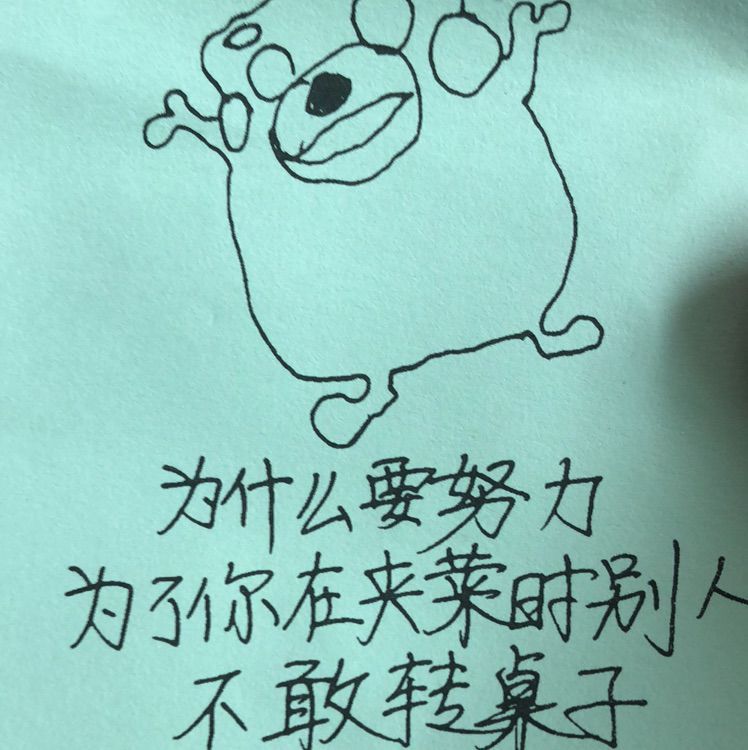 为什么要努力
为了你在夹菜时别人
不敢转桌子